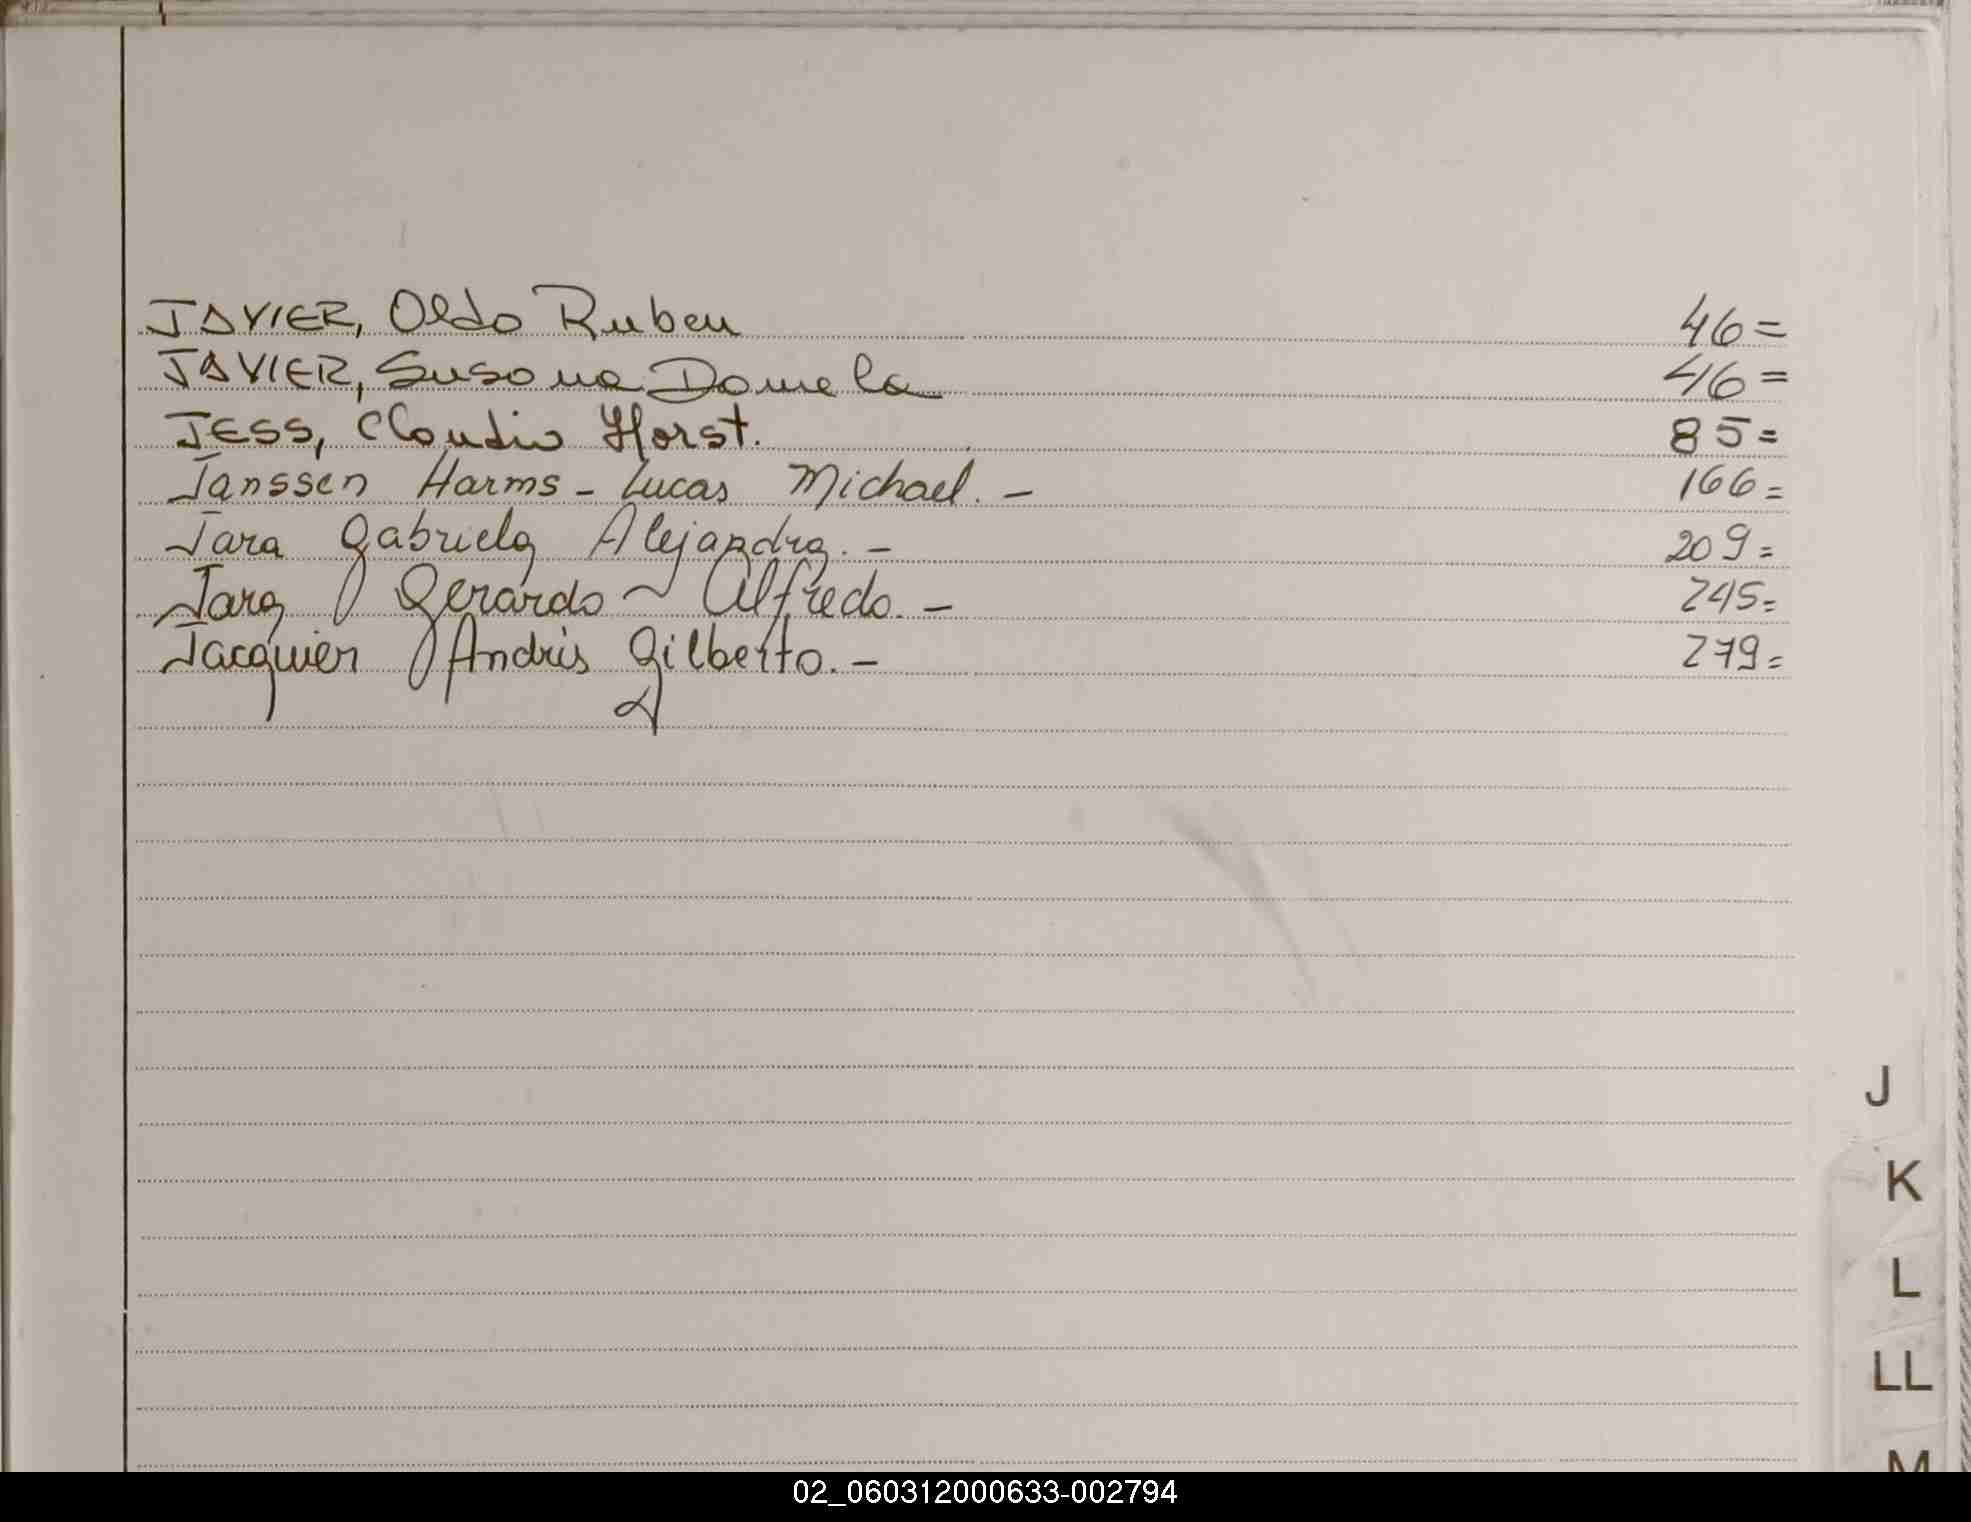 JAVIER, Oldo Ruben 46=
JAVIER, Susana Daniela 46=
JESS, Claudio Horst. 85=
Janssen Harms - Lucas Michael. - 166=
Jara Gabriela Alejandra. - 209=
Jara Gerardo ~ Alfredo. - 245=
Jacquier Andrés Gilberto. - 279=
J
K
L
LL
M
02_060312000633-002794